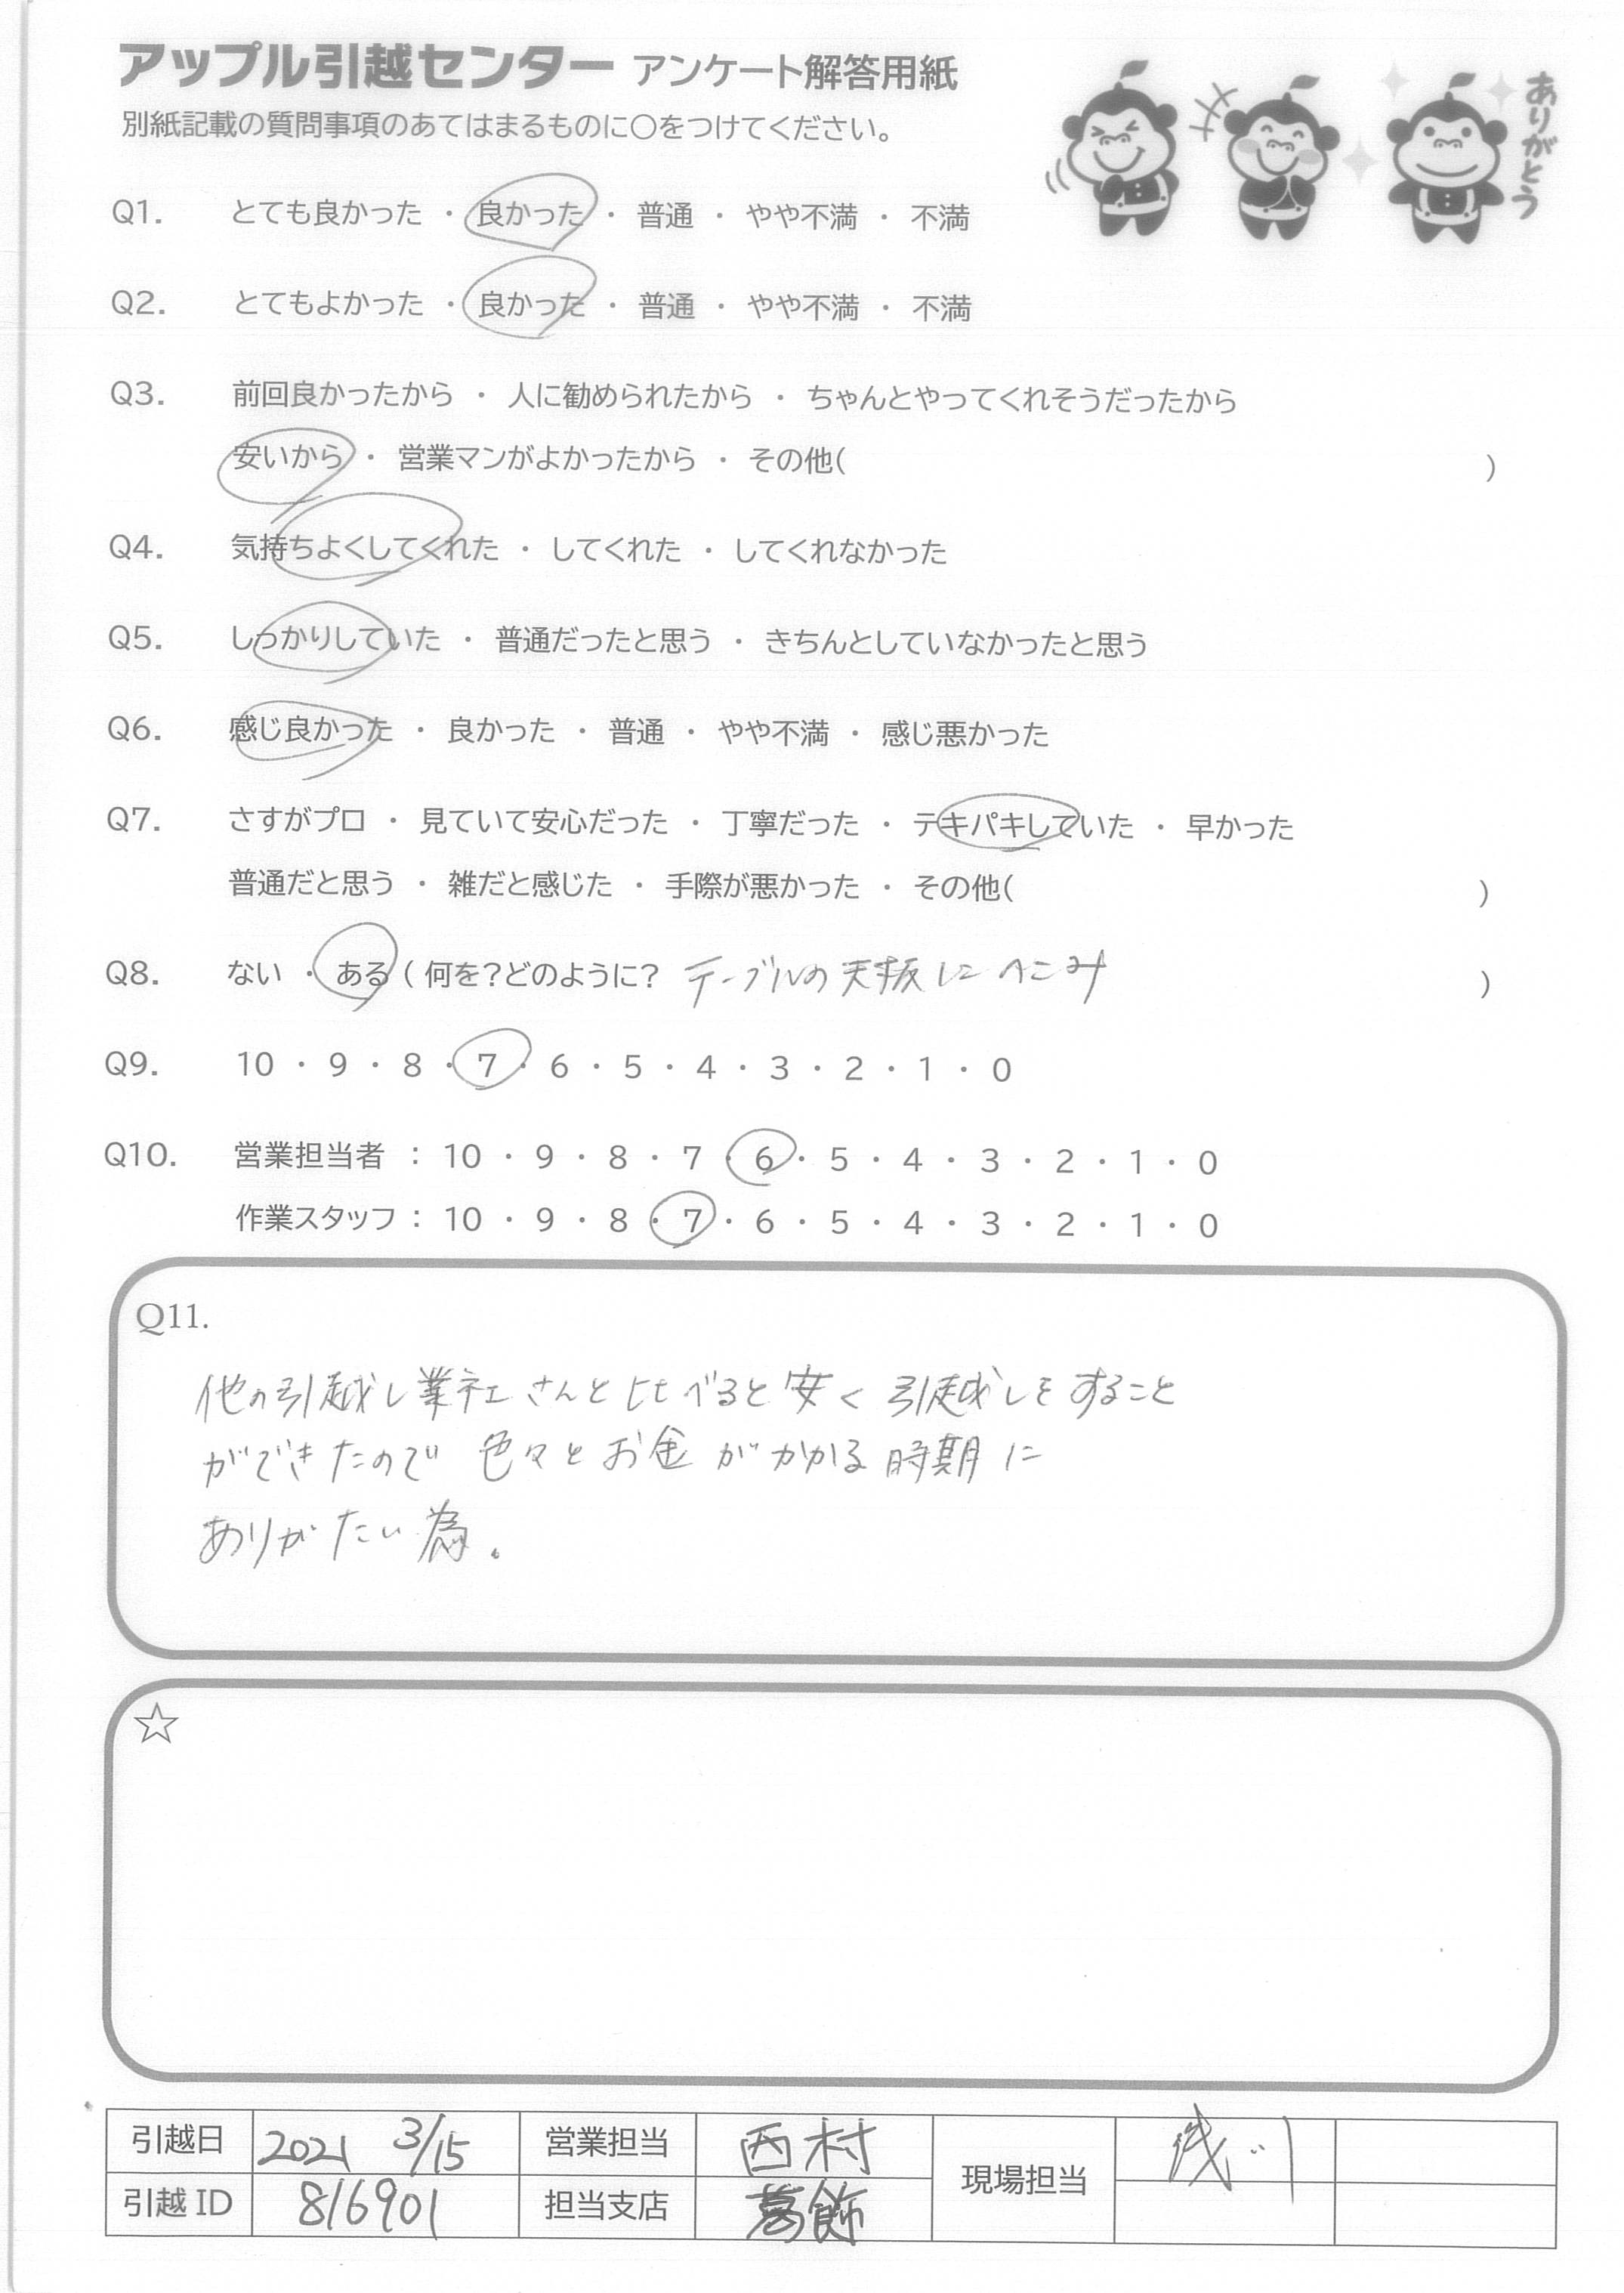 アップル引越センター アンケート解答用紙
ありがとう
別紙記載の質問事項のあてはまるものに○をつけてください。
Q1. とても良かった ・ 良かった ・ 普通 ・ やや不満 ・ 不満
Q2. とてもよかった ・ 良かった ・ 普通 ・ やや不満 ・ 不満
Q3. 前回良かったから ・ 人に勧められたから ・ ちゃんとやってくれそうだったから
安いから ・ 営業マンがよかったから ・ その他( )
Q4. 気持ちよくしてくれた ・ してくれた ・ してくれなかった
Q5. しっかりしていた ・ 普通だったと思う ・ きちんとしていなかったと思う
Q6. 感じ良かった ・ 良かった ・ 普通 ・ やや不満 ・ 感じ悪かった
Q7. さすがプロ ・ 見ていて安心だった ・ 丁寧だった ・ テキパキしていた ・ 早かった
普通だと思う ・ 雑だと感じた ・ 手際が悪かった ・ その他( )
Q8. ない ・ ある ( 何を?どのように? テーブルの天板にへこみ )
Q9. 10 ・ 9 ・ 8 ・ 7 ・ 6 ・ 5 ・ 4 ・ 3 ・ 2 ・ 1 ・ 0
Q10. 営業担当者 : 10 ・ 9 ・ 8 ・ 7 ・ 6 ・ 5 ・ 4 ・ 3 ・ 2 ・ 1 ・ 0
作業スタッフ : 10 ・ 9 ・ 8 ・ 7 ・ 6 ・ 5 ・ 4 ・ 3 ・ 2 ・ 1 ・ 0
Q11.
他の引越し業社さんと比べると安く引越しをすること
ができたので色々とお金がかかる時期に
ありがたい為.
☆
引越日 2021 3/15 営業担当 西村 現場担当
引越ID 816901 担当支店 葛飾